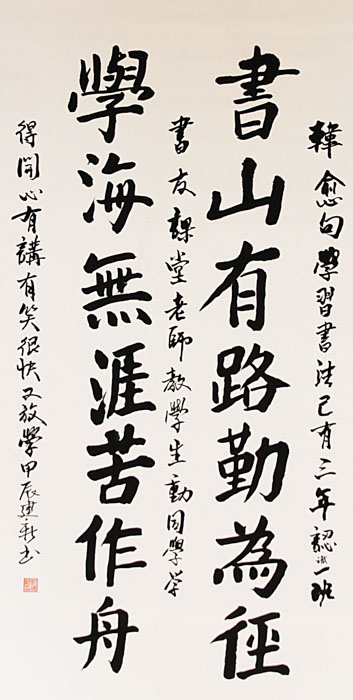 韓愈句學習書法已有三年認識一班
書山有路勤為徑
書友課堂老師教學生動同學学
學海無涯苦作舟
得開心有講有笑很快又放學甲辰建新书